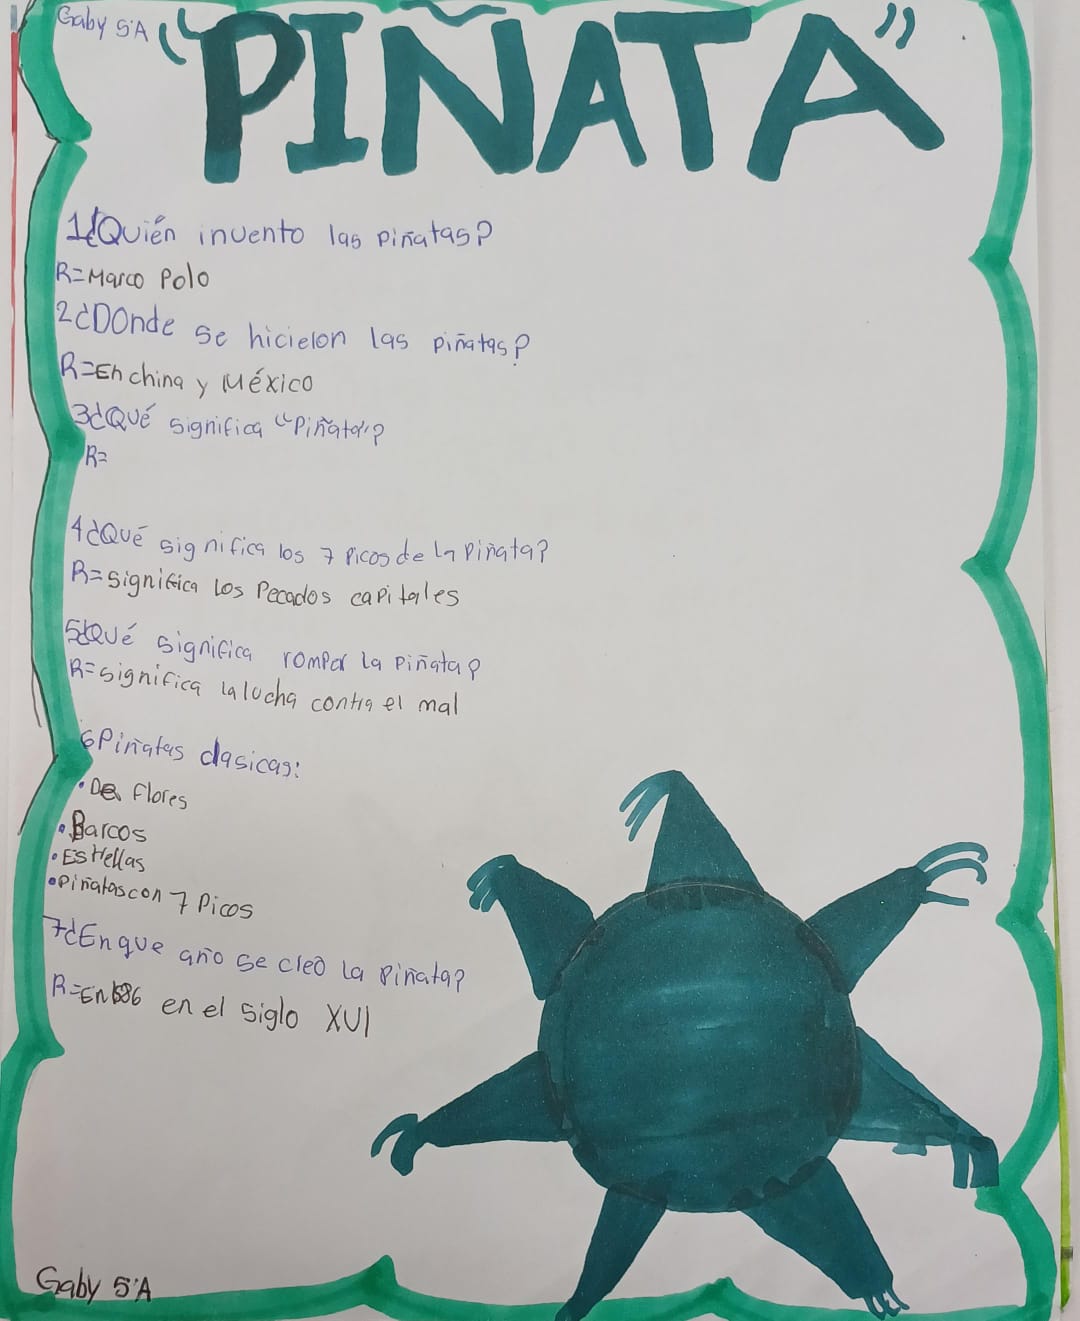 Gaby 5°A
"PIÑATA"
1¿Quién invento las piñatas?
R=Marco Polo
2¿DOnde se hicielon las piñatas?
R=En china y México
3¿Qué significa "Piñata"?
R=
4¿Qué significa los 7 Picos de la Piñata?
R=significa los Pecados capitales
5¿Qué significa romper la piñata?
R=significa la lucha contra el mal
6Piñatas clasicas:
•De flores
•Barcos
•Estrellas
•piñatas con 7 Picos
7¿En que año se cleo la piñata?
R=En 1586 en el siglo XVI
Gaby 5°A